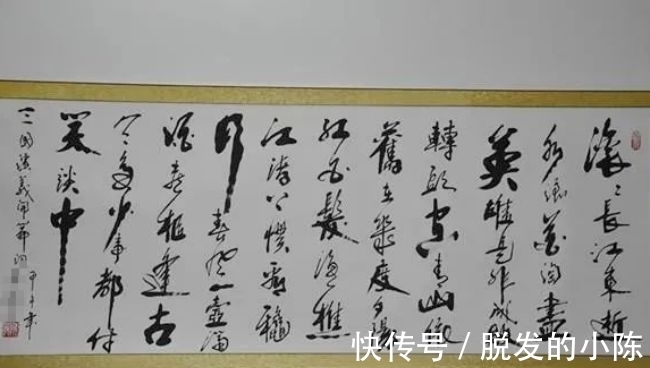 滚々長江東逝
水浪花淘盡
英雄是非成敗
轉頭空青山依
舊在幾度夕陽
紅白髮漁樵
江渚上慣看龝
月春風一壺濁
酒喜相逢古
今多少事都付
笑談中
三国演義開篇詞 甲午年
快传号 / 脱发的小陈